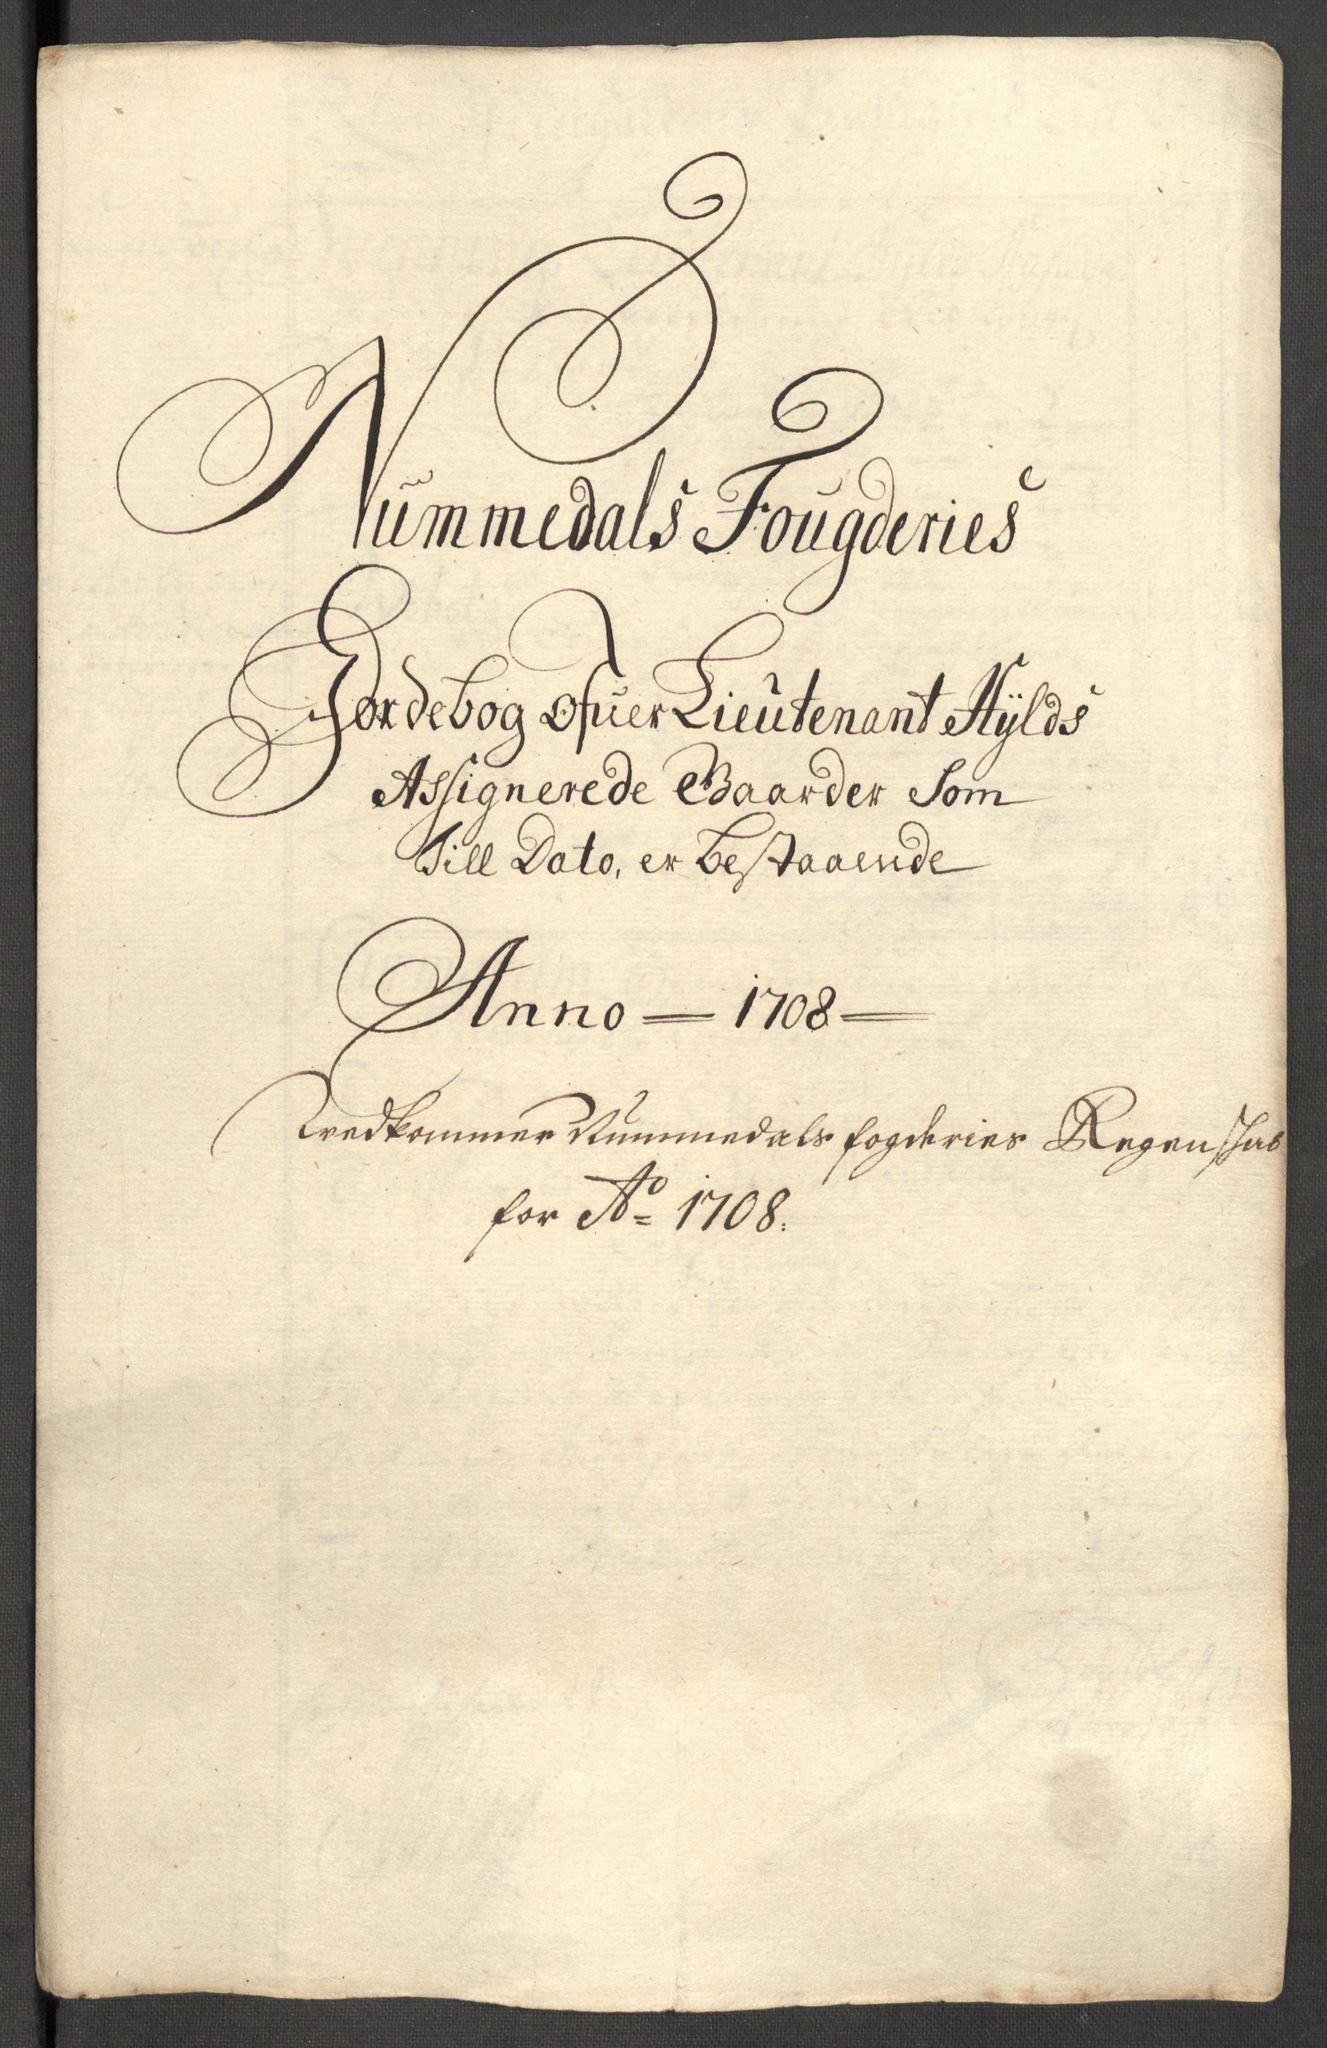 Nummedals Fougderies
Jordebog Ofuer Lieutenant Hÿlds
Assignerede Gaarder Som
Till Dato, er bestaaende
Anno 1708
Vedkommer Nummedals fogderies Regenskab
for Ao 1708.